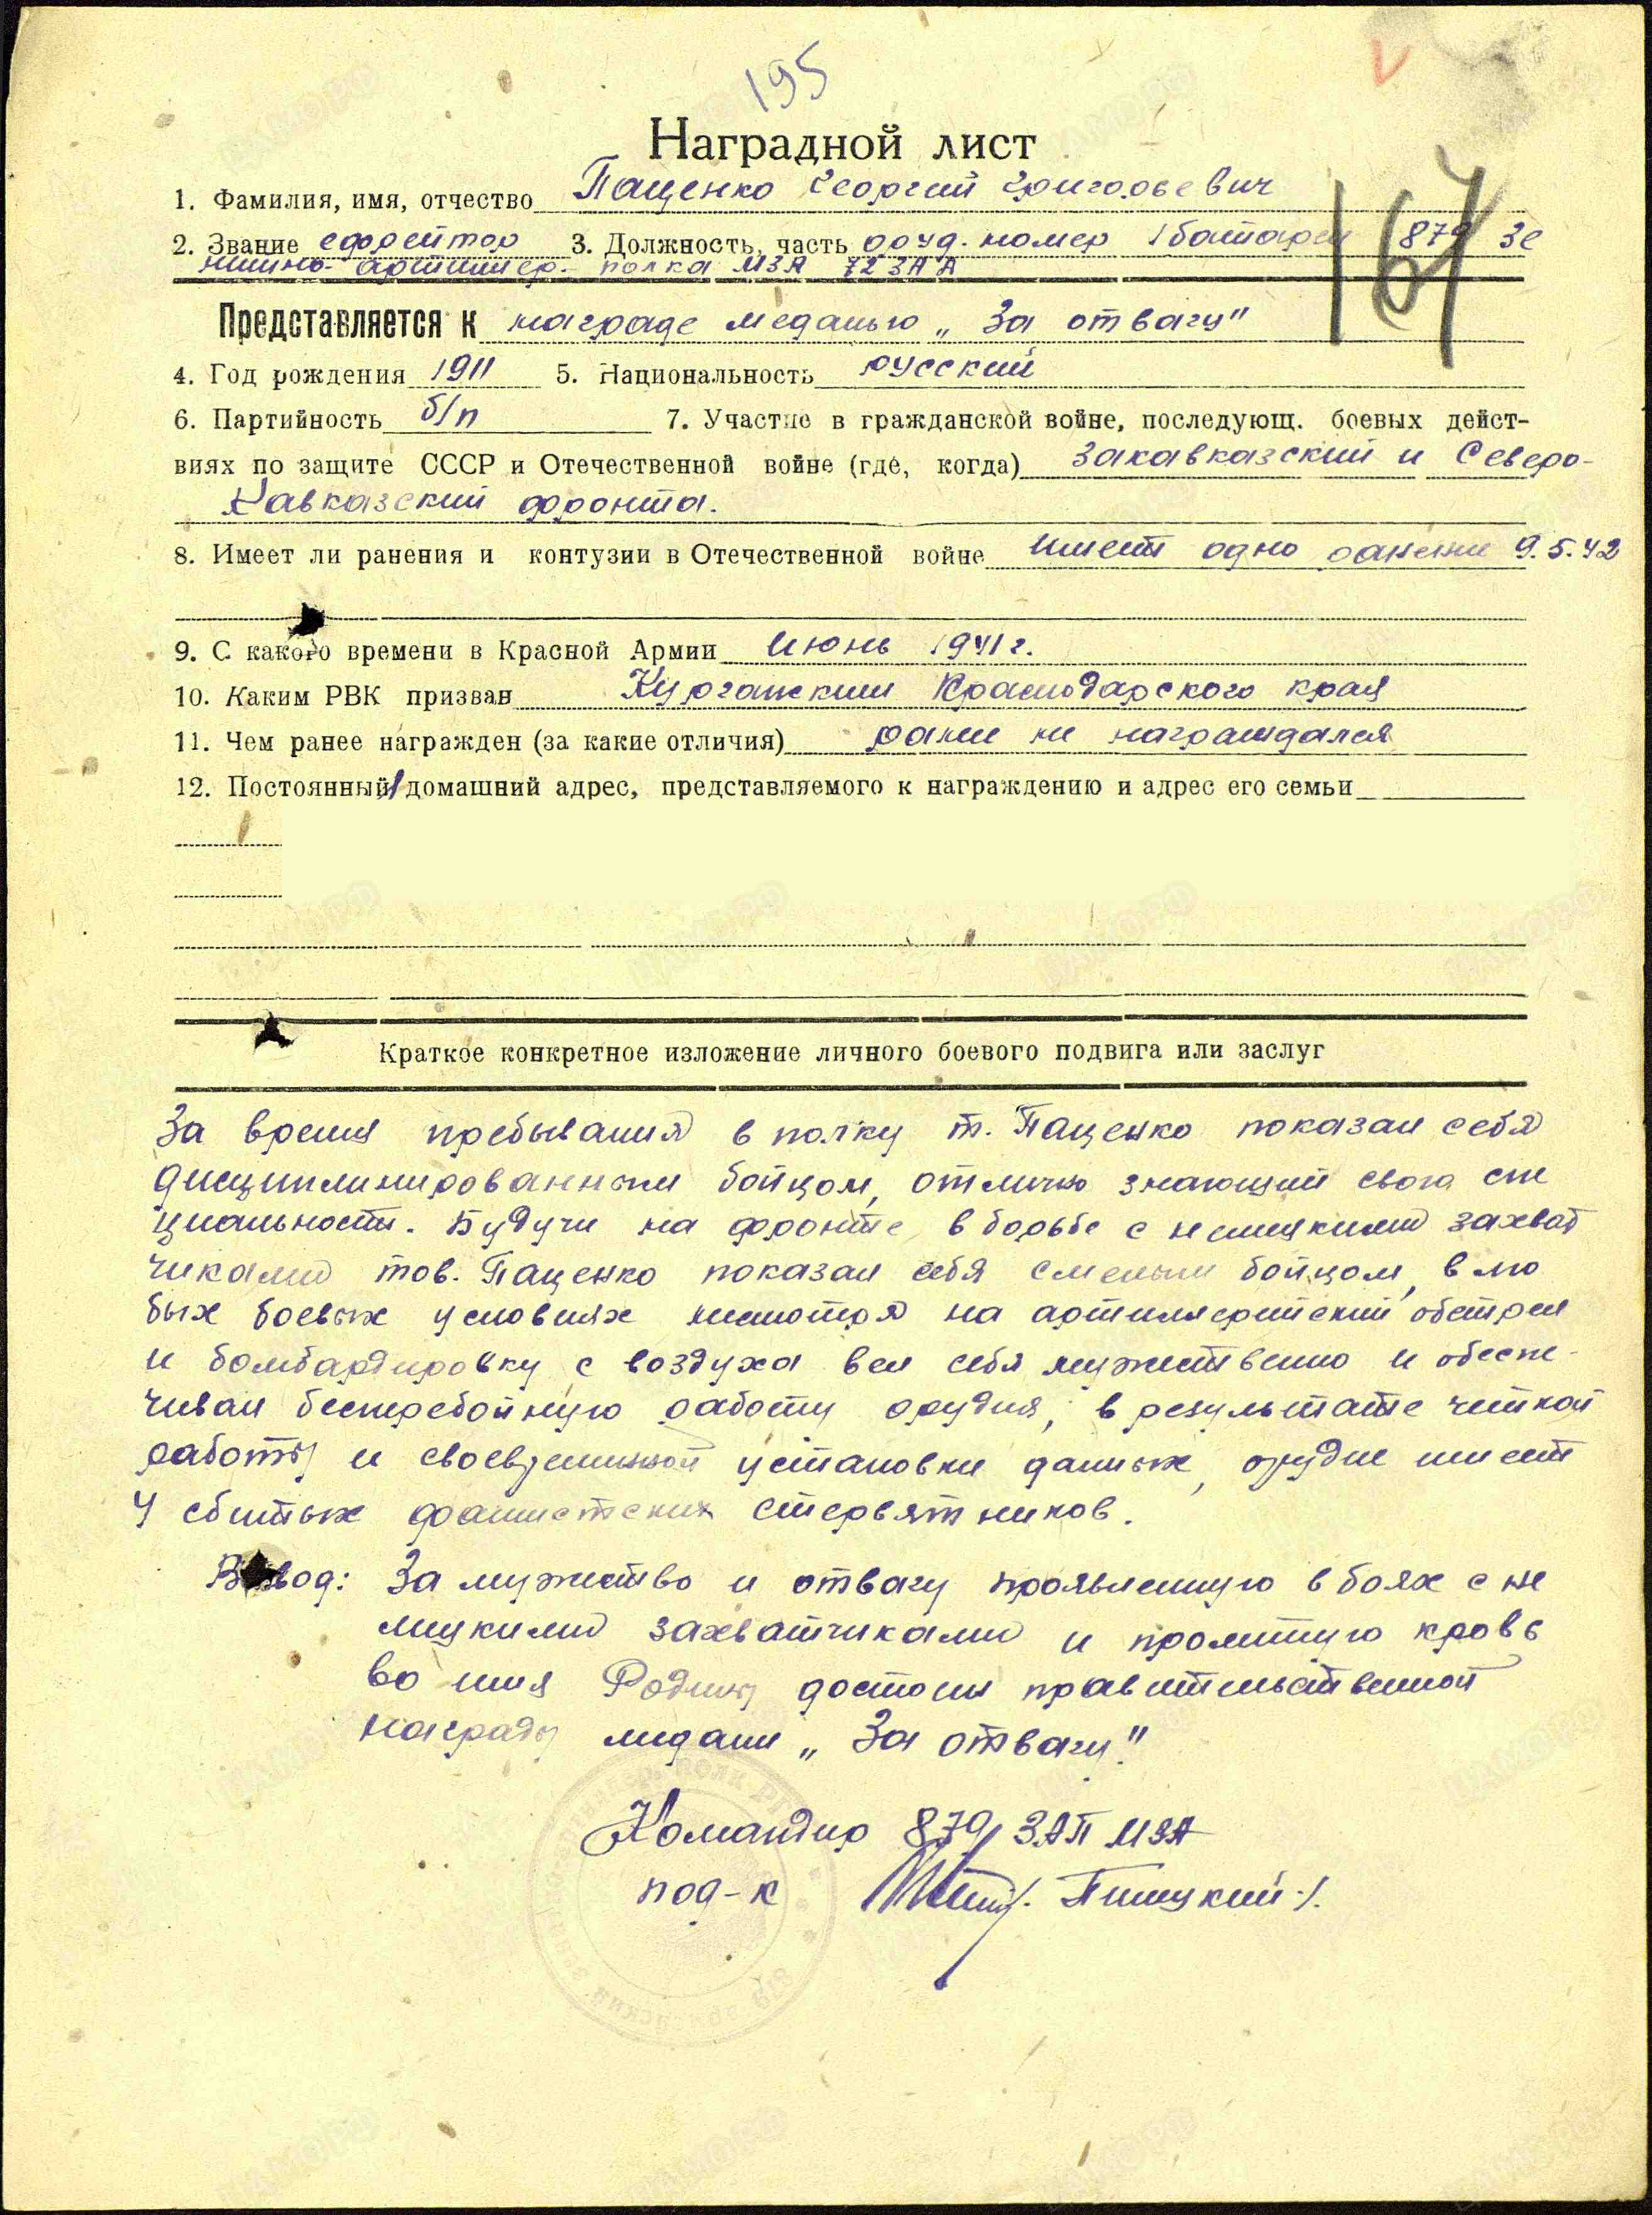 195
Наградной лист
1. Фамилия, имя, отчество Паценко Георгий Григорьевич
2. Звание ефрейтор 3. Должность, часть оруд. номер 1 батареи 879 Зе
нитно-артиллер. полка МЗА 72 ЗАД
167
Представляется к награде медалью „За отвагу"
4. Год рождения 1911 5. Национальность русский
6. Партийность б/п 7. Участие в гражданской войне, последующ. боевых дейст-
виях по защите СССР и Отечественной войне (где, когда) Закавказский и Северо-
Кавказский фронта.
8. Имеет ли ранения и контузии в Отечественной войне имеет одно ранение 9.5.42
9. С какого времени в Красной Армии Июнь 1941 г.
10. Каким РВК призван Курганским Краснодарского края
11. Чем ранее награжден (за какие отличия) ранее не награждался
12. Постоянный домашний адрес, представляемого к награждению и адрес его семьи
Краткое конкретное изложение личного боевого подвига или заслуг
За время пребывания в полку т. Паценко показал себя
дисциплинированным бойцом, отлично знающий свою спе
циальность. Будучи на фронте в борьбе с немецкими захват
чиками тов. Паценко показал себя смелым бойцом, в лю
бых боевых условиях несмотря на артиллерийский обстрел
и бомбардировку с воздуха вел себя мужественно и обеспе-
чивал бесперебойную работу орудия, в результате четкой
работы и своевременной установки данных, орудие имеет
4 сбитых фашистских стервятников.
Вывод: За мужество и отвагу проявленную в боях с не
мецкими захватчиками и пролитую кровь
во имя Родины достоин правительственной
награды медали „За отвагу".
Командир 879 ЗАП МЗА
под-к /Пинцкий/.